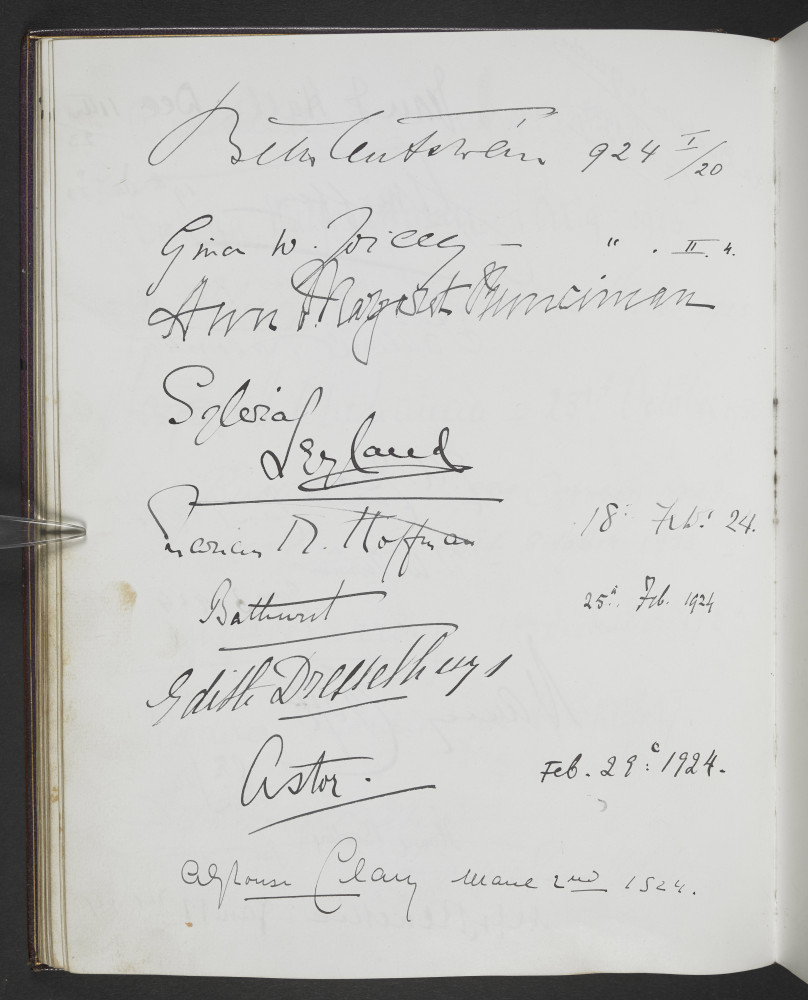 924 I/20
Gina W. Joicey — " . II. 4.
Ann Margaret Runciman
Sylvia
Leyland
Marian M. Hoffman 18. Feb. 24.
Bathurst 25. Feb. 1924
Edith Dresselhuys
Astor. Feb. 29. 1924.
Alphonse Clary 2nd 1924.